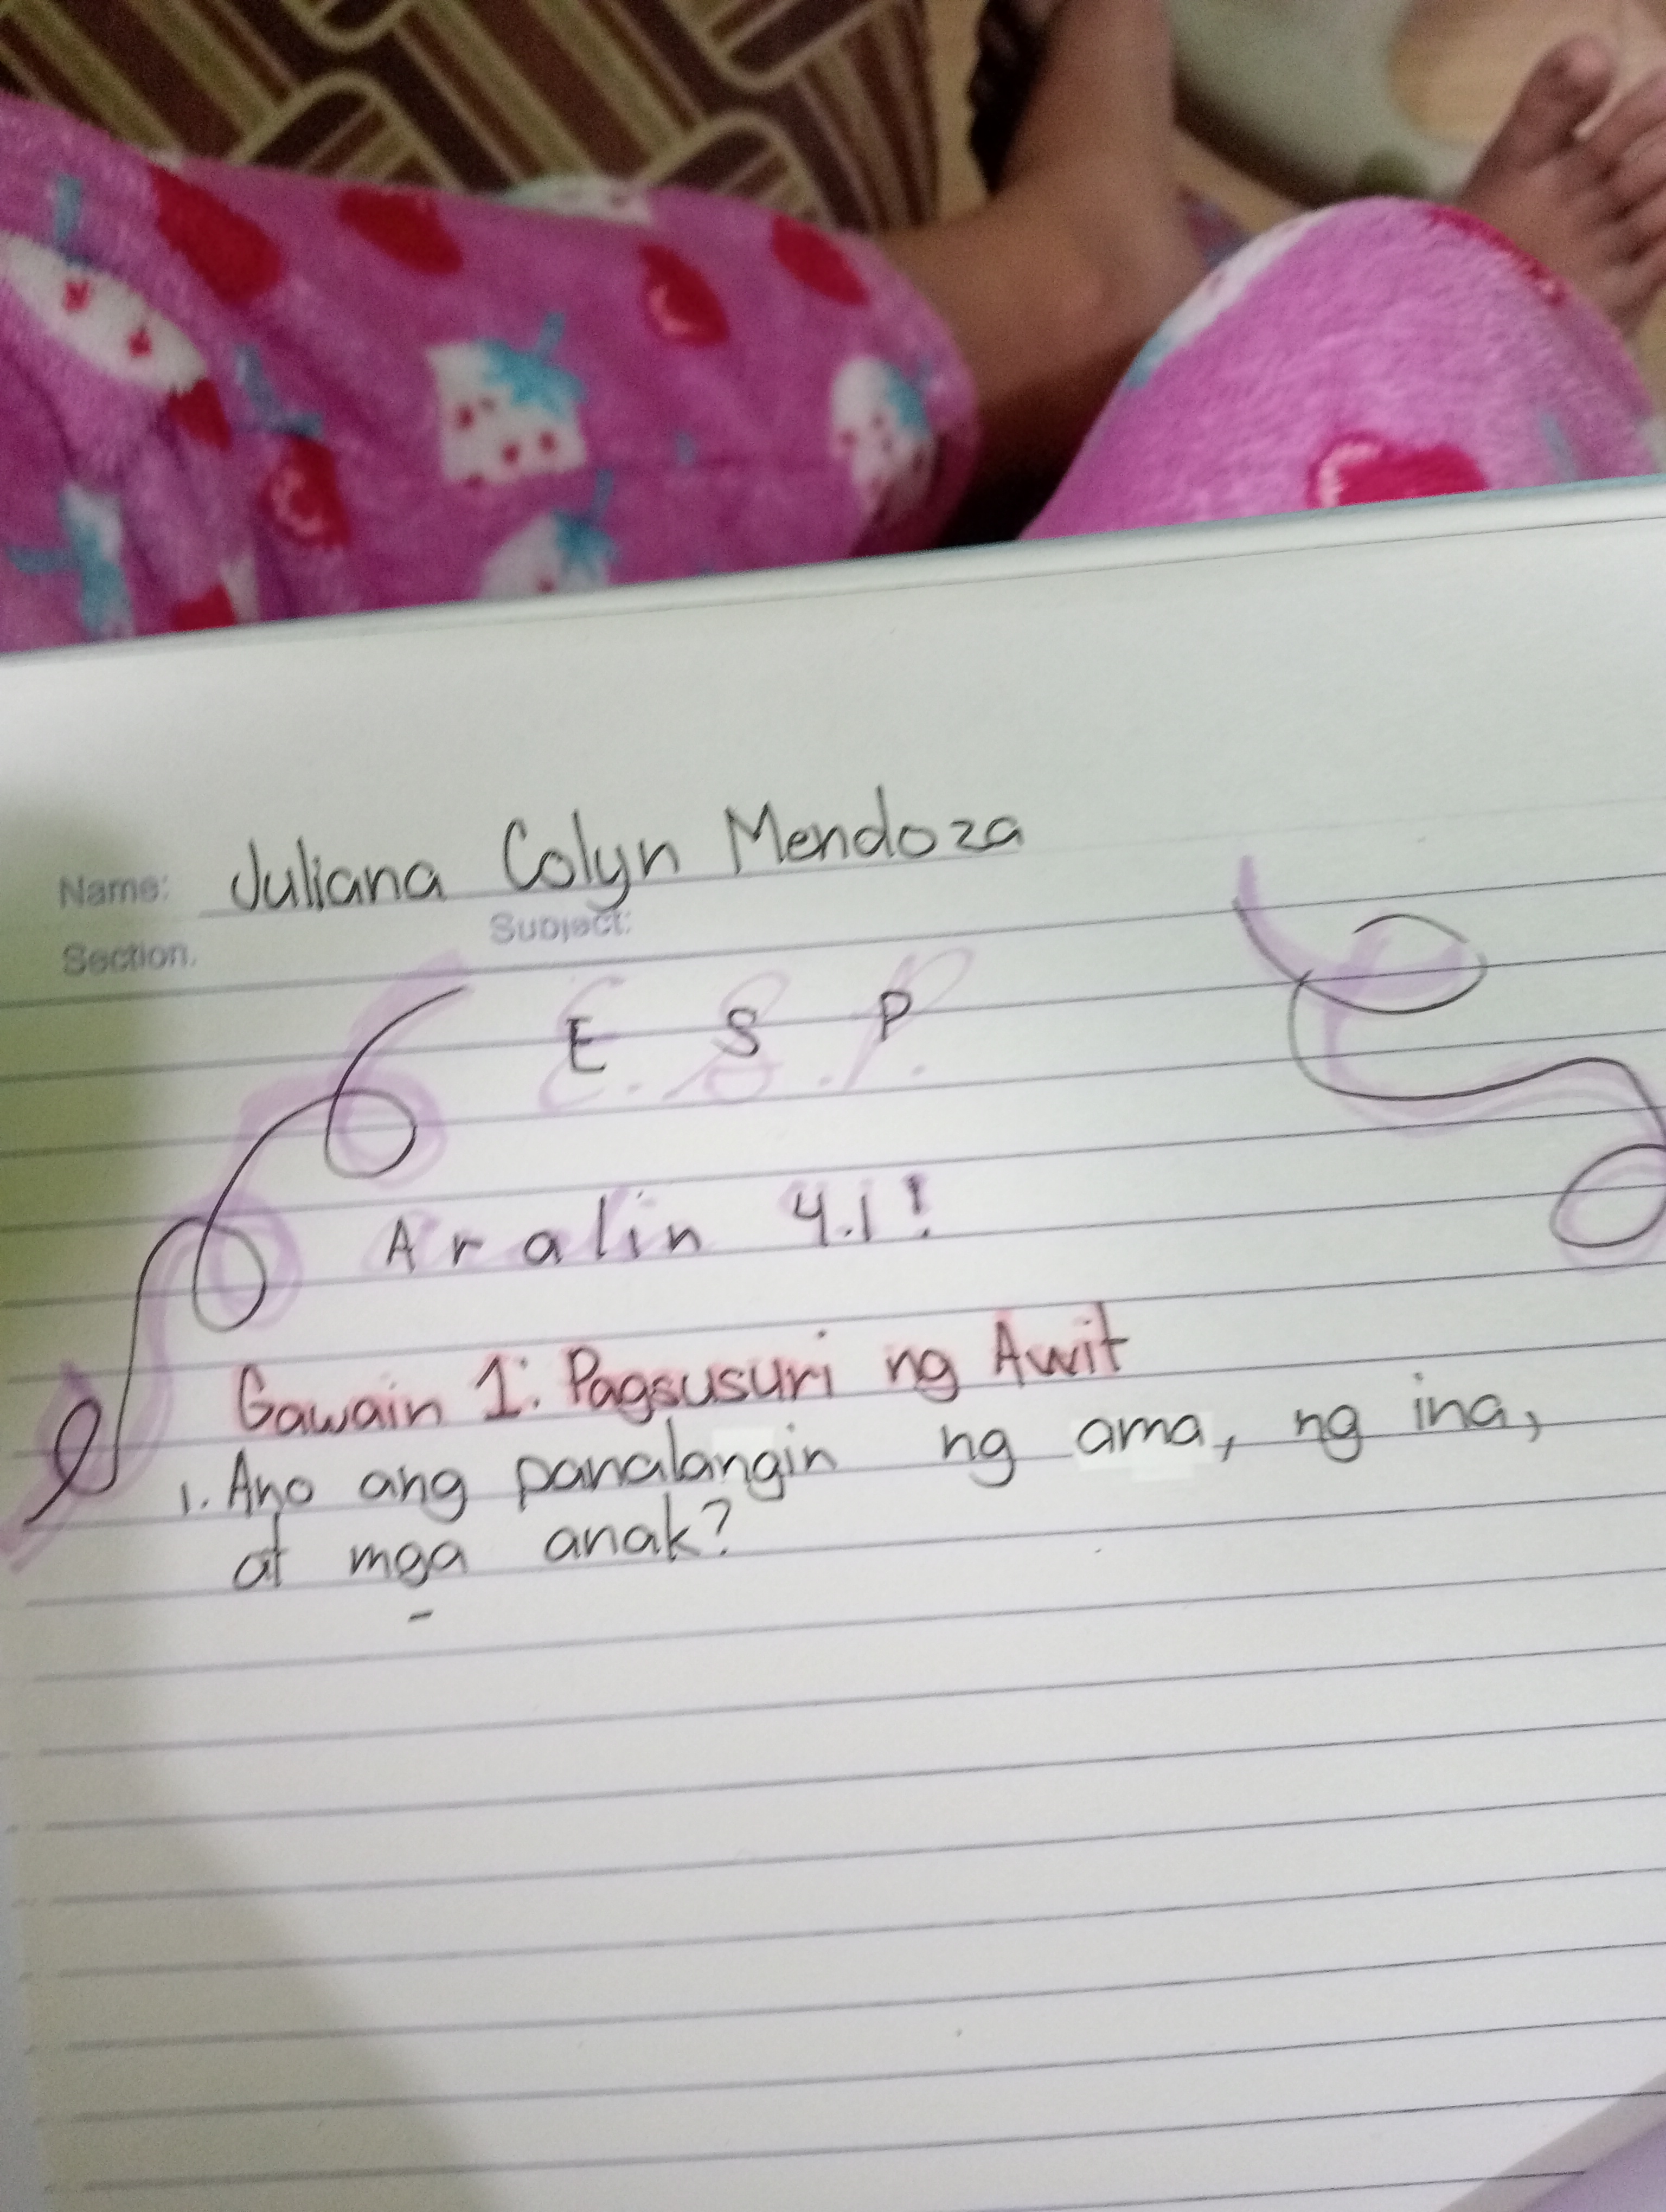 Name: Juliana Colyn Mendoza
Section. Subject:
E S P
Aralin 4.1!
Gawain 1: Pagsusuri ng Awit
1. Ano ang panalangin ng ama, ng ina,
at mga anak?
-